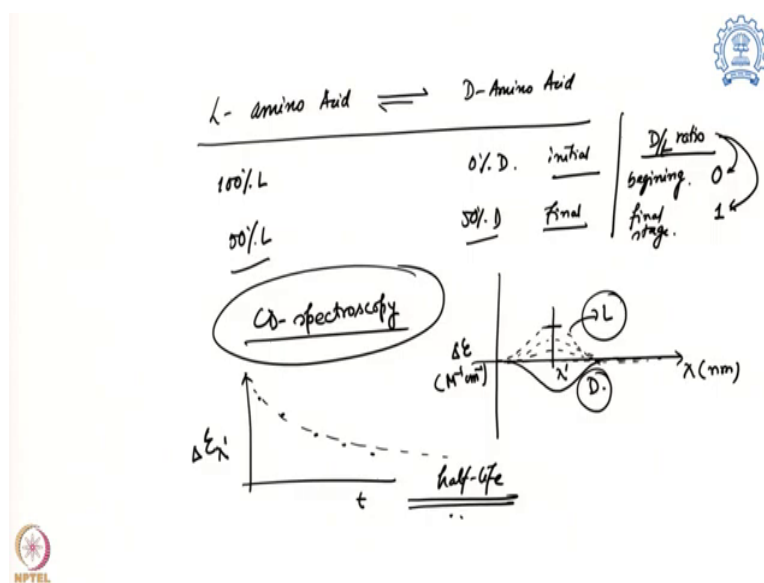 L- amino Acid ⇌ D-Amino Acid
100% L 0% D. initial
50% L 50% D Final
D/L ratio
begining. 0
final stage. 1
CD-spectroscopy
Δε (M⁻¹cm⁻¹)
L
λ'
D.
λ(nm)
Δελ'
t
half-life
NPTEL